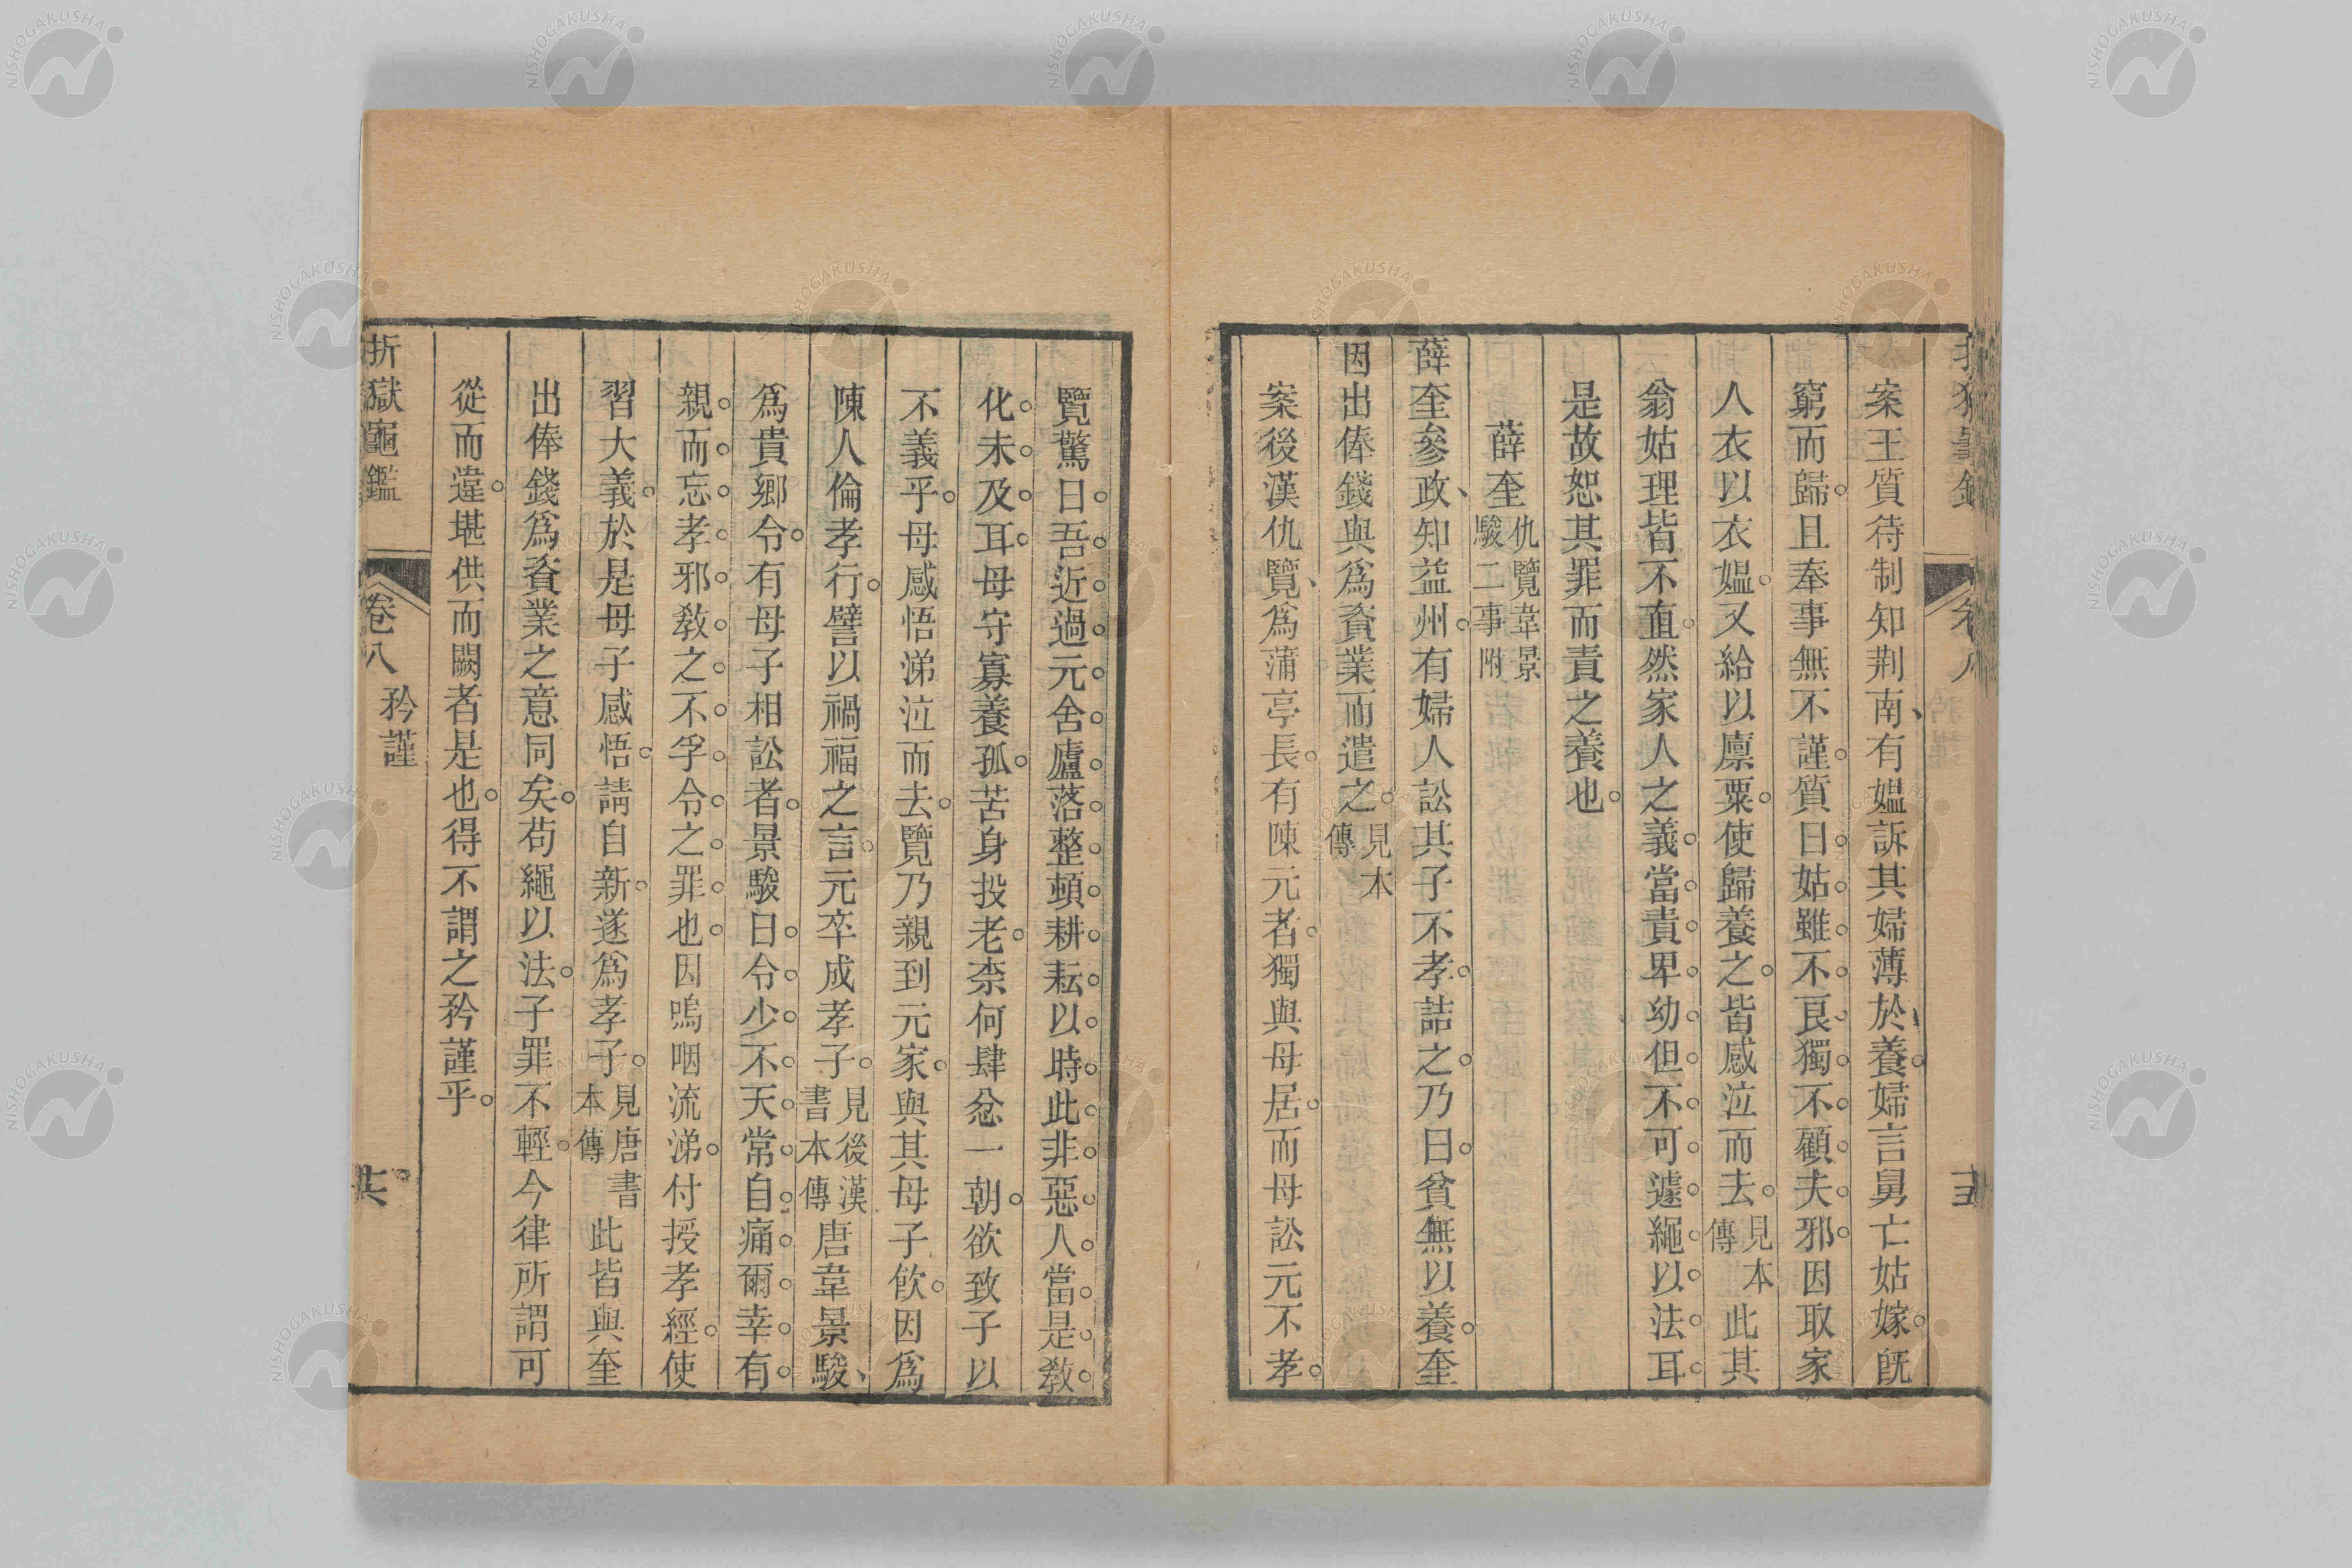 案王質待制知荆南、有媼訴其婦薄於養。婦言舅亡姑嫁。旣
窮而歸。且奉事無不謹。質曰。姑雖。不良。獨。不。顧。夫。邪。因取家
人衣以衣媼。又給以廩粟。使歸養之。皆感泣而去。見本傳此其
翁姑理皆不直。然家人之義。當。責。卑。幼。但。不。可。遽。繩。以。法。耳。
是故恕其罪而責之養也。
薛奎仇覽韋景駿二事附
薛奎參政、知益州。有婦人訟其子不孝。詰之。乃曰。貧無以養。奎
因出俸錢與爲資業而遣之。見本傳
案後漢仇覽、爲蒲亭長。有陳元者。獨與母居。而母訟元不孝。
覽驚曰。吾。近。過。元。舍。廬。落。整。頓。耕。耘。以。時。此。非。惡。人。當。是。敎。
化。未。及。耳。母守寡養孤。苦身投老。柰何肆忿一朝。欲致子以
不義乎。母感悟涕泣而去。覽乃親到元家。與其母子飮。因爲
陳人倫孝行。譬以禍福之言。元卒成孝子。見後漢書本傳唐韋景駿、
爲貴鄉令。有母子相訟者。景駿曰。令。少。不。天。常。自。痛。爾。幸。有。
親。而。忘。孝。邪。敎。之。不。孚。令。之。罪。也。因嗚咽流涕。付授孝經。使
習大義。於是母子感悟。請自新。遂爲孝子。見唐書本傳此皆與奎
出俸錢爲資業之意同矣。苟繩以法。子罪不輕。今律所謂可
從而違。堪供而闕者是也。得不謂之矜謹乎。
折獄龜鑑
卷八
矜謹